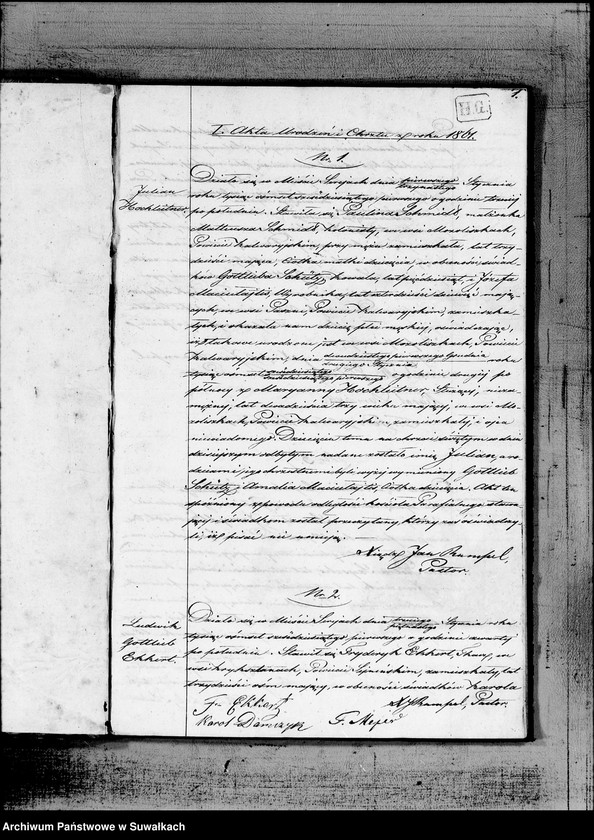 1.
H.G.
I. Akta Urodzeń i Chrztu z roku 1861.
Nr. 1.
Julian
Hochleitner.
Działo się w Mieście Serejach dnia pierwszego trzynastego Stycznia
roku tysiąc ośmset sześćdziesiątego pierwszego o godzinie trzeciej
po południu. Stawiła się Paulina Schmidt, małżonka
Matteusza Schmidt, kolonisty, we wsi
Powiecie Kalwaryjskim, przy mężu zamieszkała, lat trzy-
dzieści mająca, Ciotka matki dziecięcia, w obecności świad-
ków Gottlieba Schütz, kowala, lat pięćdziesiąt, i Józefa
Macieitajtis, Wyrobnika, lat czterdzieści dziewięć mają-
cych, we wsi Powiecie Kalwaryjskim, zamieszka-
łych, i okazała nam dziecię płci męzkiej, oświadczając,
iż takowe urodzone jest we wsi Powiecie
Kalwaryjskim, dnia dwudziestego pierwszego Grudnia drugiego Stycznia roku
tysiąc ośmset sześćdziesiątego pierwszego o godzinie drugiej po
północy z Maryanny Hochleitner Służącej, nieza-
mężnej, lat dwadzieścia trzy wieku mającej, we wsi
Powiecie Kalwaryjskim, zamieszkałej, i ojca
niewiadomego. Dziecięciu temu na chrzcie świętym w dniu
dzisiejszym odbytym nadane zostało imię Julian, a ro-
dzicami jego chrzestnemi byli wyżej wymieniony Gottlieb
Schütz i Amalia Macieitajtis, Ciotka dziecięcia. Akt ten
opóźniony z powodu odległości kościoła Parafialnego stawa-
jącej i świadkom został przeczytany, którzy zaś oświadczy-
li, iż pisać nie umieją.
Ksiądz Jan Rumpel,
Pastor.
Nr. 2.
Ludwik
Gottlieb
Ekkert.
Działo się w Mieście Serejach dnia Stycznia roku
tysiąc ośmset sześćdziesiątego pierwszego o godzinie czwartej
po południu. Stawił się Frydryk Ekkert, we
wsi Powiecie Sejneńskim, zamieszkały, lat
trzydzieści ośm mający, w obecności świadków Karola
F. Ekkert
X J Rumpel, Pastor.
Karol
F. Mejer
Archiwum Państwowe w Suwałkach